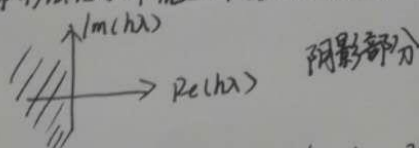 Im(hλ)
Re(hλ)
阴影部分